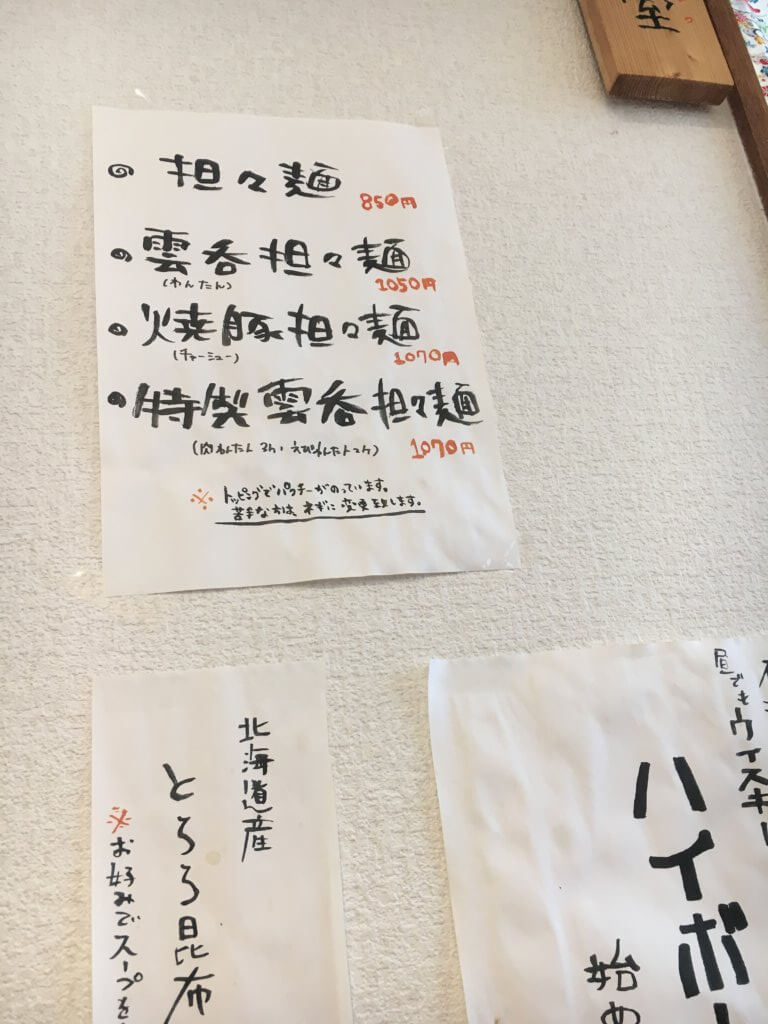 室
担々麺 850円
雲呑担々麺 1050円
(わんたん)
焼豚担々麺 1070円
(チャーシュー)
特製雲呑担々麺 1070円
(肉わんたん3ケ・えびわんたん2ケ)
※ トッピングでパクチーがのっています。
苦手な方は、ネギに変更致します。
北海道産
とろろ昆布
※お好みでスープを
昼でもウイスキー
ハイボー
始め